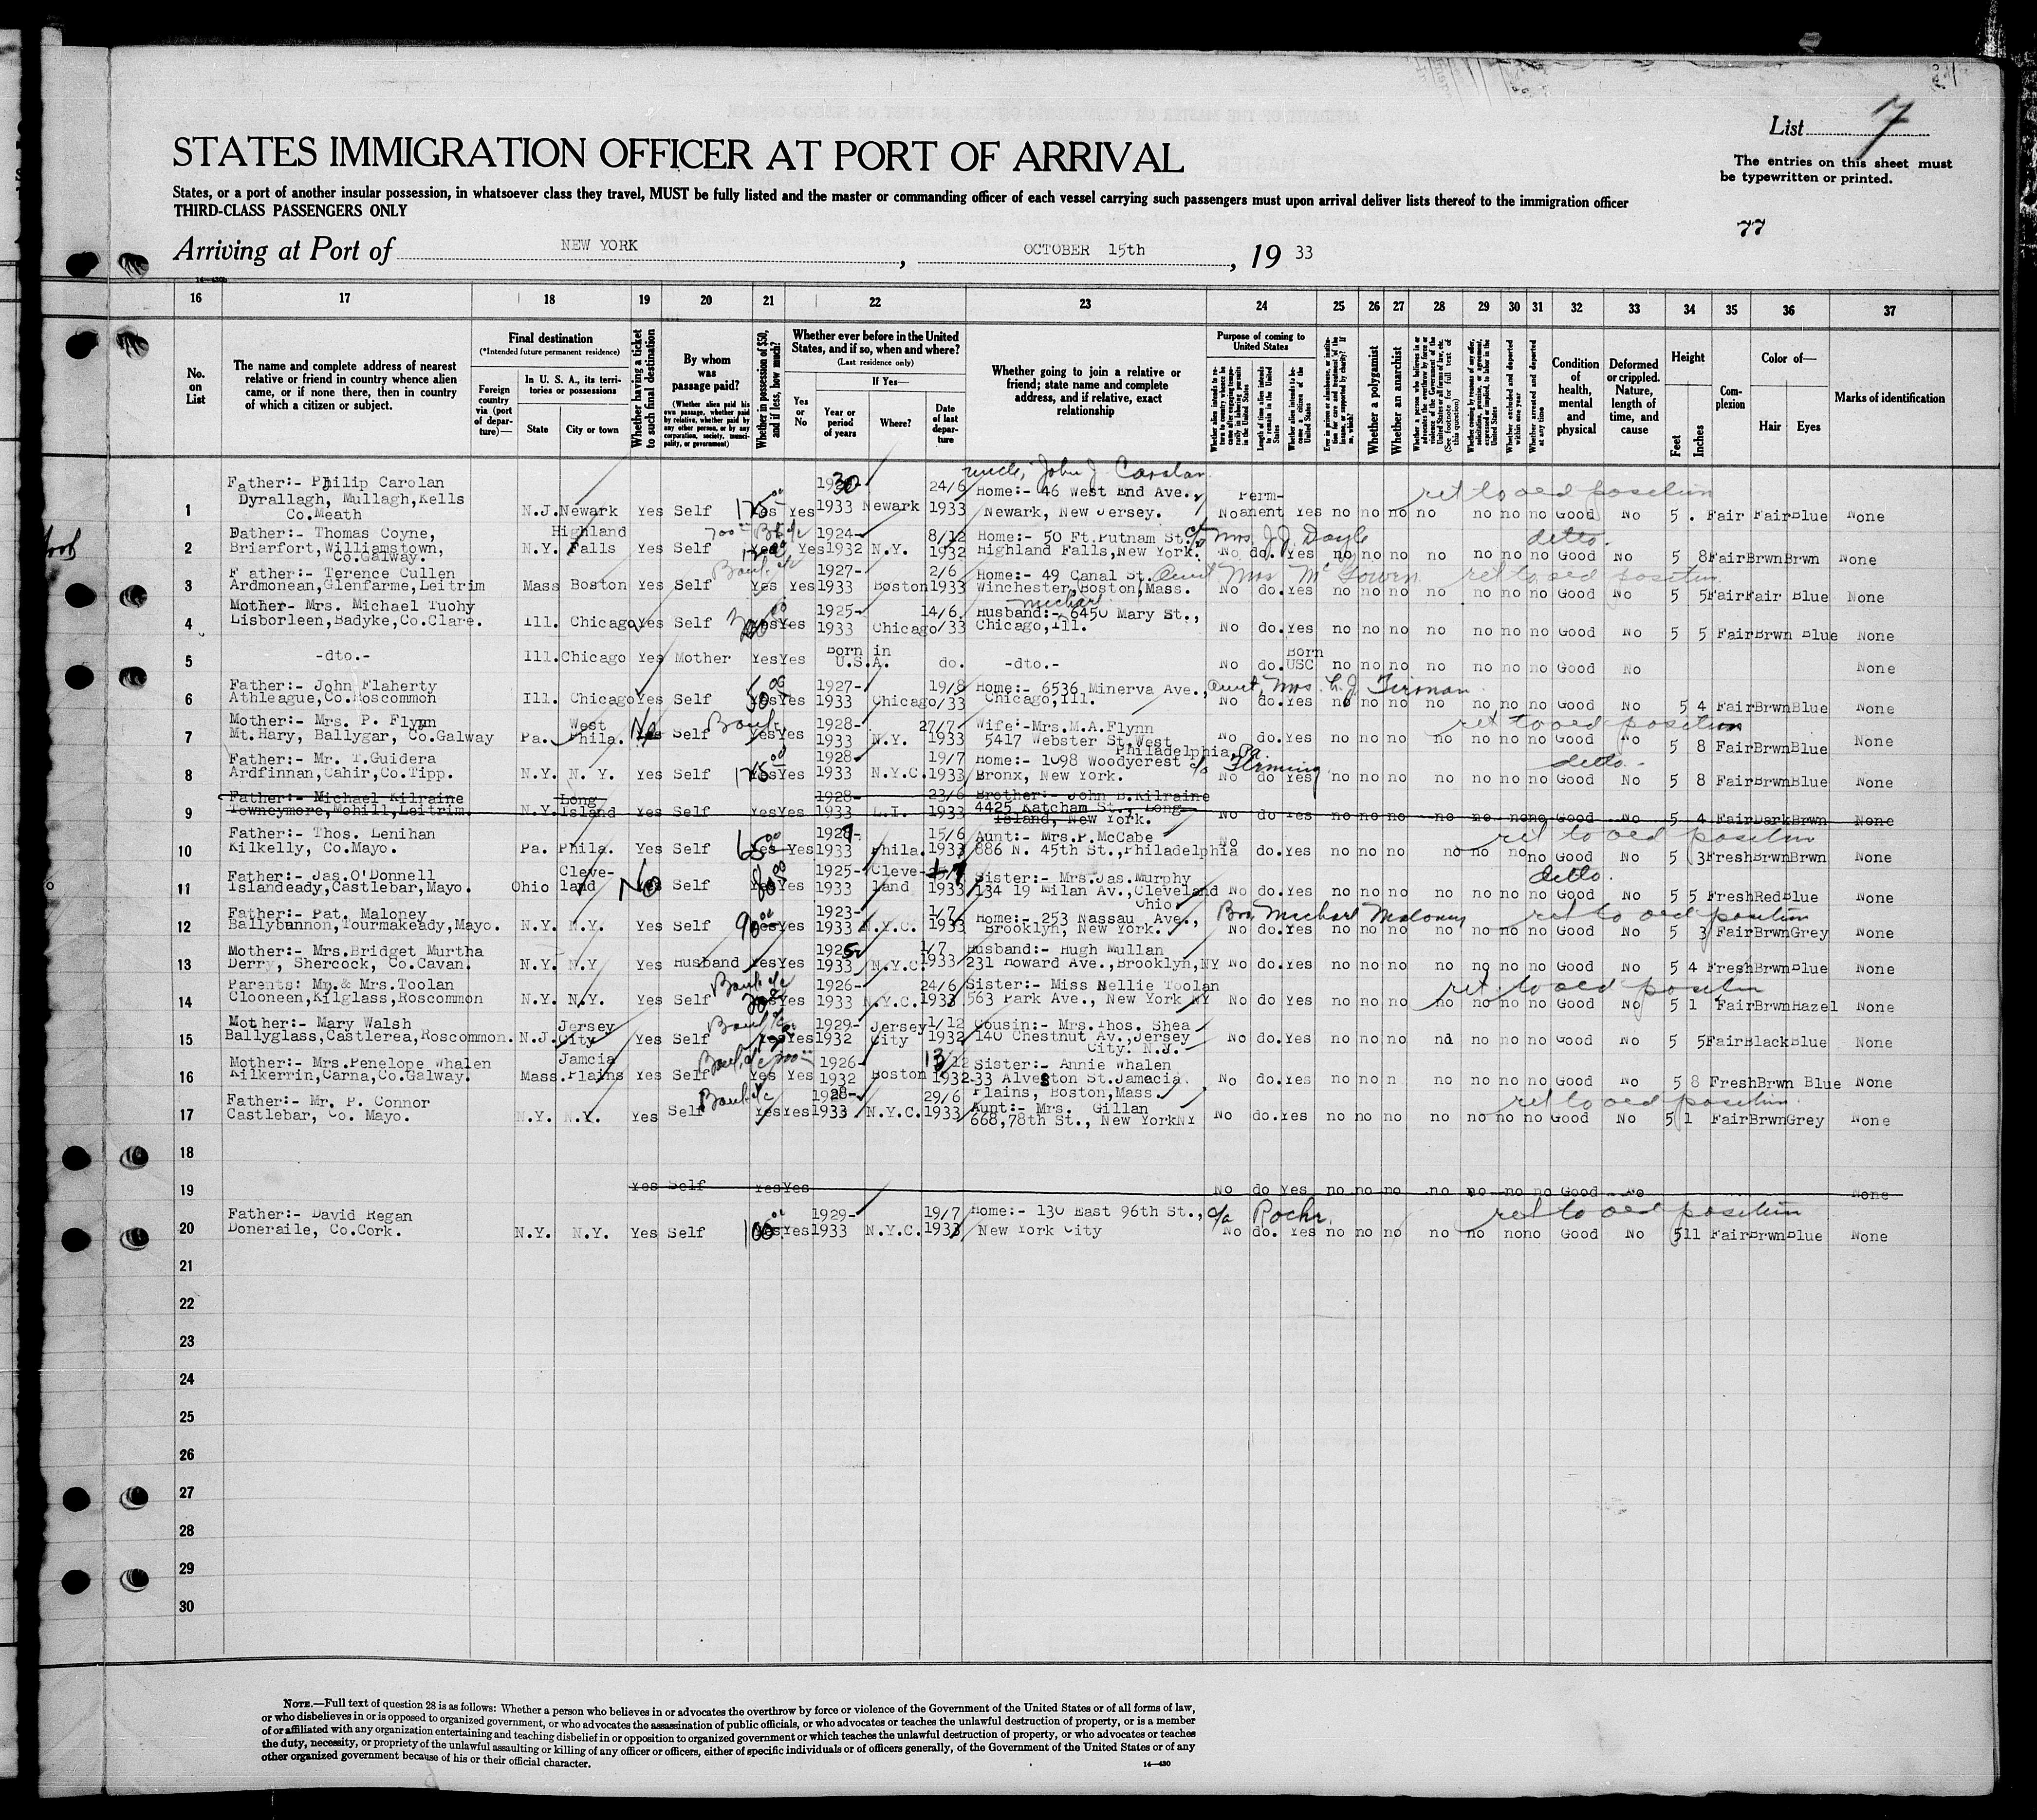 List 7
STATES IMMIGRATION OFFICER AT PORT OF ARRIVAL
The entries on this sheet must
be typewritten or printed.
States, or a port of another insular possession, in whatsoever class they travel, MUST be fully listed and the master or commanding officer of each vessel carrying such passengers must upon arrival deliver lists thereof to the immigration officer
THIRD-CLASS PASSENGERS ONLY
77
Arriving at Port of NEW YORK, OCTOBER 15th, 19 33
16 17 18 19 20 21 22 23 24 25 26 27 28 29 30 31 32 33 34 35 36 37
No. on List
The name and complete address of nearest
relative or friend in country whence alien
came, or if none there, then in country
of which a citizen or subject.
Final destination
(*Intended future permanent residence)
Foreign country via (port of departure)—
In U. S. A., its territories or possessions
State City or town
Whether having a ticket to such final destination
By whom was passage paid?
(Whether alien paid his own passage, whether paid by relative, whether paid by any other person, or by any corporation, society, municipality, or government)
Whether in possession of $50, and if less, how much?
Whether ever before in the United
States, and if so, when and where?
(Last residence only)
Yes or No
If Yes—
Year or period of years Where? Date of last departure
Whether going to join a relative or
friend; state name and complete
address, and if relative, exact
relationship
Purpose of coming to United States
Whether a polygamist
Whether an anarchist
Condition of health, mental and physical
Deformed or crippled. Nature, length of time, and cause
Height
Feet Inches
Complexion
Color of—
Hair Eyes
Marks of identification
uncle, John J. Carolan
1 Father:- Philip Carolan Dyrallagh, Mullagh,Kells Co.Meath N.J. Newark Yes Self 175 00 Yes 1930- 1933 Newark 24/6 1933 Home:- 46 West End Ave., Newark, New Jersey. No Perm-anent Yes no no no no no no no Good No 5 . Fair Fair Blue None
ret to old position
2 Father:- Thomas Coyne, Briarfort,Williamstown, Co.Galway. N.Y. Highland Falls Yes Self Yes Yes 1924- 1932 N.Y. 8/12 1932 Home:- 50 Ft.Putnam St. Highland Falls,New York. No do. Yes no no no no no no no Good No 5 8 Fair Brwn Brwn None
c/o Mrs. J.J. Doyle ditto.
3 Father:- Terence Cullen Ardmonean,Glenfarme,Leitrim Mass Boston Yes Self Yes Yes 1927- 1933 Boston 2/6 1933 Home:- 49 Canal St. Winchester,Boston,Mass. No do. Yes no no no no no no no Good No 5 5 Fair Fair Blue None
Aunt Mrs McGowen ret to old position
4 Mother- Mrs. Michael Tuohy Lisborleen,Badyke,Co.Clare. Ill. Chicago Yes Self Yes 1925- 1933 Chicago 14/6 /33 Husband:- 6450 Mary St., Chicago,Ill. No do. Yes no no no no no no no Good No 5 5 Fair Brwn Blue None
Michael
5 -dto.- Ill. Chicago Yes Mother Yes Yes Born in U.S.A. do. -dto.- No do. Born USC no no no no no no no Good No None
6 Father:- John Flaherty Athleague,Co.Roscommon Ill. Chicago Yes Self 50 00 Yes 1927- 1933 Chicago 19/8 /33 Home:- 6536 Minerva Ave., Chicago,Ill. No do. Yes no no no no no no no Good No 5 4 Fair Brwn Blue None
7 Mother:- Mrs. P. Flynn Mt.Hary, Ballygar, Co.Galway Pa. West Phila. No Self Bank Yes Yes 1928- 1933 N.Y. 27/7 1933 Wife:-Mrs.M.A.Flynn 5417 Webster St.West Philadelphia,Pa. No do. Yes no no no no no no no Good No 5 8 Fair Brwn Blue None
ret to old position
8 Father:- Mr. T.Guidera Ardfinnan,Cahir,Co.Tipp. N.Y. N. Y. Yes Self 175 00 Yes 1928- 1933 N.Y.C. 19/7 1933 Home:- 1098 Woodycrest Bronx, New York. No do Yes no no no no no no no Good No 5 8 Fair Brwn Blue None
c/o Fleming ditto.
9 Father:- Michael Kilraine Towneymore,Mohill,Leitrim. N.Y. Long Island Yes Self Yes Yes 1928- 1933 L.I. 23/6 1933 Brother:- John B.Kilraine 4425 Katcham St., Long Island, New York. No do Yes no no no no no no no Good No 5 4 Fair Dark Brwn None
10 Father:- Thos. Lenihan Kilkelly, Co.Mayo. Pa. Phila. Yes Self 65 00 Yes 1927- 1933 Phila. 15/6 1933 Aunt:- Mrs.P.McCabe 886 N. 45th St.,Philadelphia No do. Yes no no no no no no no Good No 5 3 Fresh Brwn Brwn None
ret to old position
11 Father:- Jas.O'Donnell Islandeady,Castlebar,Mayo. Ohio Cleve- land No Self 80 00 Yes 1925- 1933 Cleve- land 1933 Sister:- Mrs.Jas.Murphy 134 19 Milan Av.,Cleveland Ohio No do. Yes no no no no no no no Good No 5 5 Fresh Red Blue None
ditto.
12 Father:- Pat. Maloney Ballybannon,Tourmakeady,Mayo. N.Y. N.Y. Yes Self 90 00 Yes 1923- 1933 N.Y.C. 1/7 1933 Home:- 253 Nassau Ave., Brooklyn, New York. No do. Yes no no no no no no no Good No 5 3 Fair Brwn Grey None
Bro. Michael Maloney ret to old position
13 Mother:- Mrs.Bridget Murtha Derry, Shercock, Co.Cavan. N.Y. N.Y Yes Husband Yes Yes 1925- 1933 N.Y.C. 1/7 1933 Husband:- Hugh Mullan 231 Howard Ave.,Brooklyn,NY No do. Yes no no no no no no no Good No 5 4 Fresh Brwn Blue None
14 Parents: Mr.& Mrs.Toolan Clooneen,Kilglass,Roscommon N.Y. N.Y. Yes Self Bank a/c Yes 1926- 1933 N.Y.C. 24/6 1933 Sister:- Miss Nellie Toolan 563 Park Ave., New York NY No do Yes no no no no no no no Good No 5 1 Fair Brwn Hazel None
ret to old position
15 Mother:- Mary Walsh Ballyglass,Castlerea,Roscommon. N.J. Jersey City Yes Self Bank a/c Yes Yes 1929- 1932 Jersey City 1/12 1932 Cousin:- Mrs.Thos. Shea 140 Chestnut Av.,Jersey City. N.J. No do. Yes no no no no no no no Good No 5 5 Fair Black Blue None
16 Mother:- Mrs.Penelope Whalen Kilkerrin,Carna,Co.Galway. Mass. Jamcia Plains Yes Self Bank a/c Yes Yes 1926- 1932 Boston 13/12 1932 Sister:- Annie Whalen 33 Alveston St.Jamacia Plains, Boston,Mass. No do. Yes no no n no no no no Good No 5 8 Fresh Brwn Blue None
17 Father:- Mr. P. Connor Castlebar, Co. Mayo. N.Y. N.Y. Yes Self Bank a/c Yes Yes 1928- 1933 N.Y.C. 29/6 1933 Aunt:- Mrs. Gillan 668,78th St., New YorkNY No do. Yes no no no no no no no Good No 5 1 Fair Brwn Grey None
ret to old position
18
19 Yes Self Yes Yes No do Yes no no no no no no no Good No None
20 Father:- David Regan Doneraile, Co.Cork. N.Y. N.Y. Yes Self 100 00 Yes 1929- 1933 N.Y.C. 19/7 1933 Home:- 130 East 96th St., New York City No do. Yes no no no no no no no Good No 5 11 Fair Brwn Blue None
c/o Rochr. ret to old position
21
22
23
24
25
26
27
28
29
30
NOTE.—Full text of question 28 is as follows: Whether a person who believes in or advocates the overthrow by force or violence of the Government of the United States or of all forms of law,
or who disbelieves in or is opposed to organized government, or who advocates the assassination of public officials, or who advocates or teaches the unlawful destruction of property, or is a member
of or affiliated with any organization entertaining and teaching disbelief in or opposition to organized government or which teaches the unlawful destruction of property, or who advocates or teaches
the duty, necessity, or propriety of the unlawful assaulting or killing of any officer or officers, either of specific individuals or of officers generally, of the Government of the United States or of any
other organized government because of his or their official character.
14—430